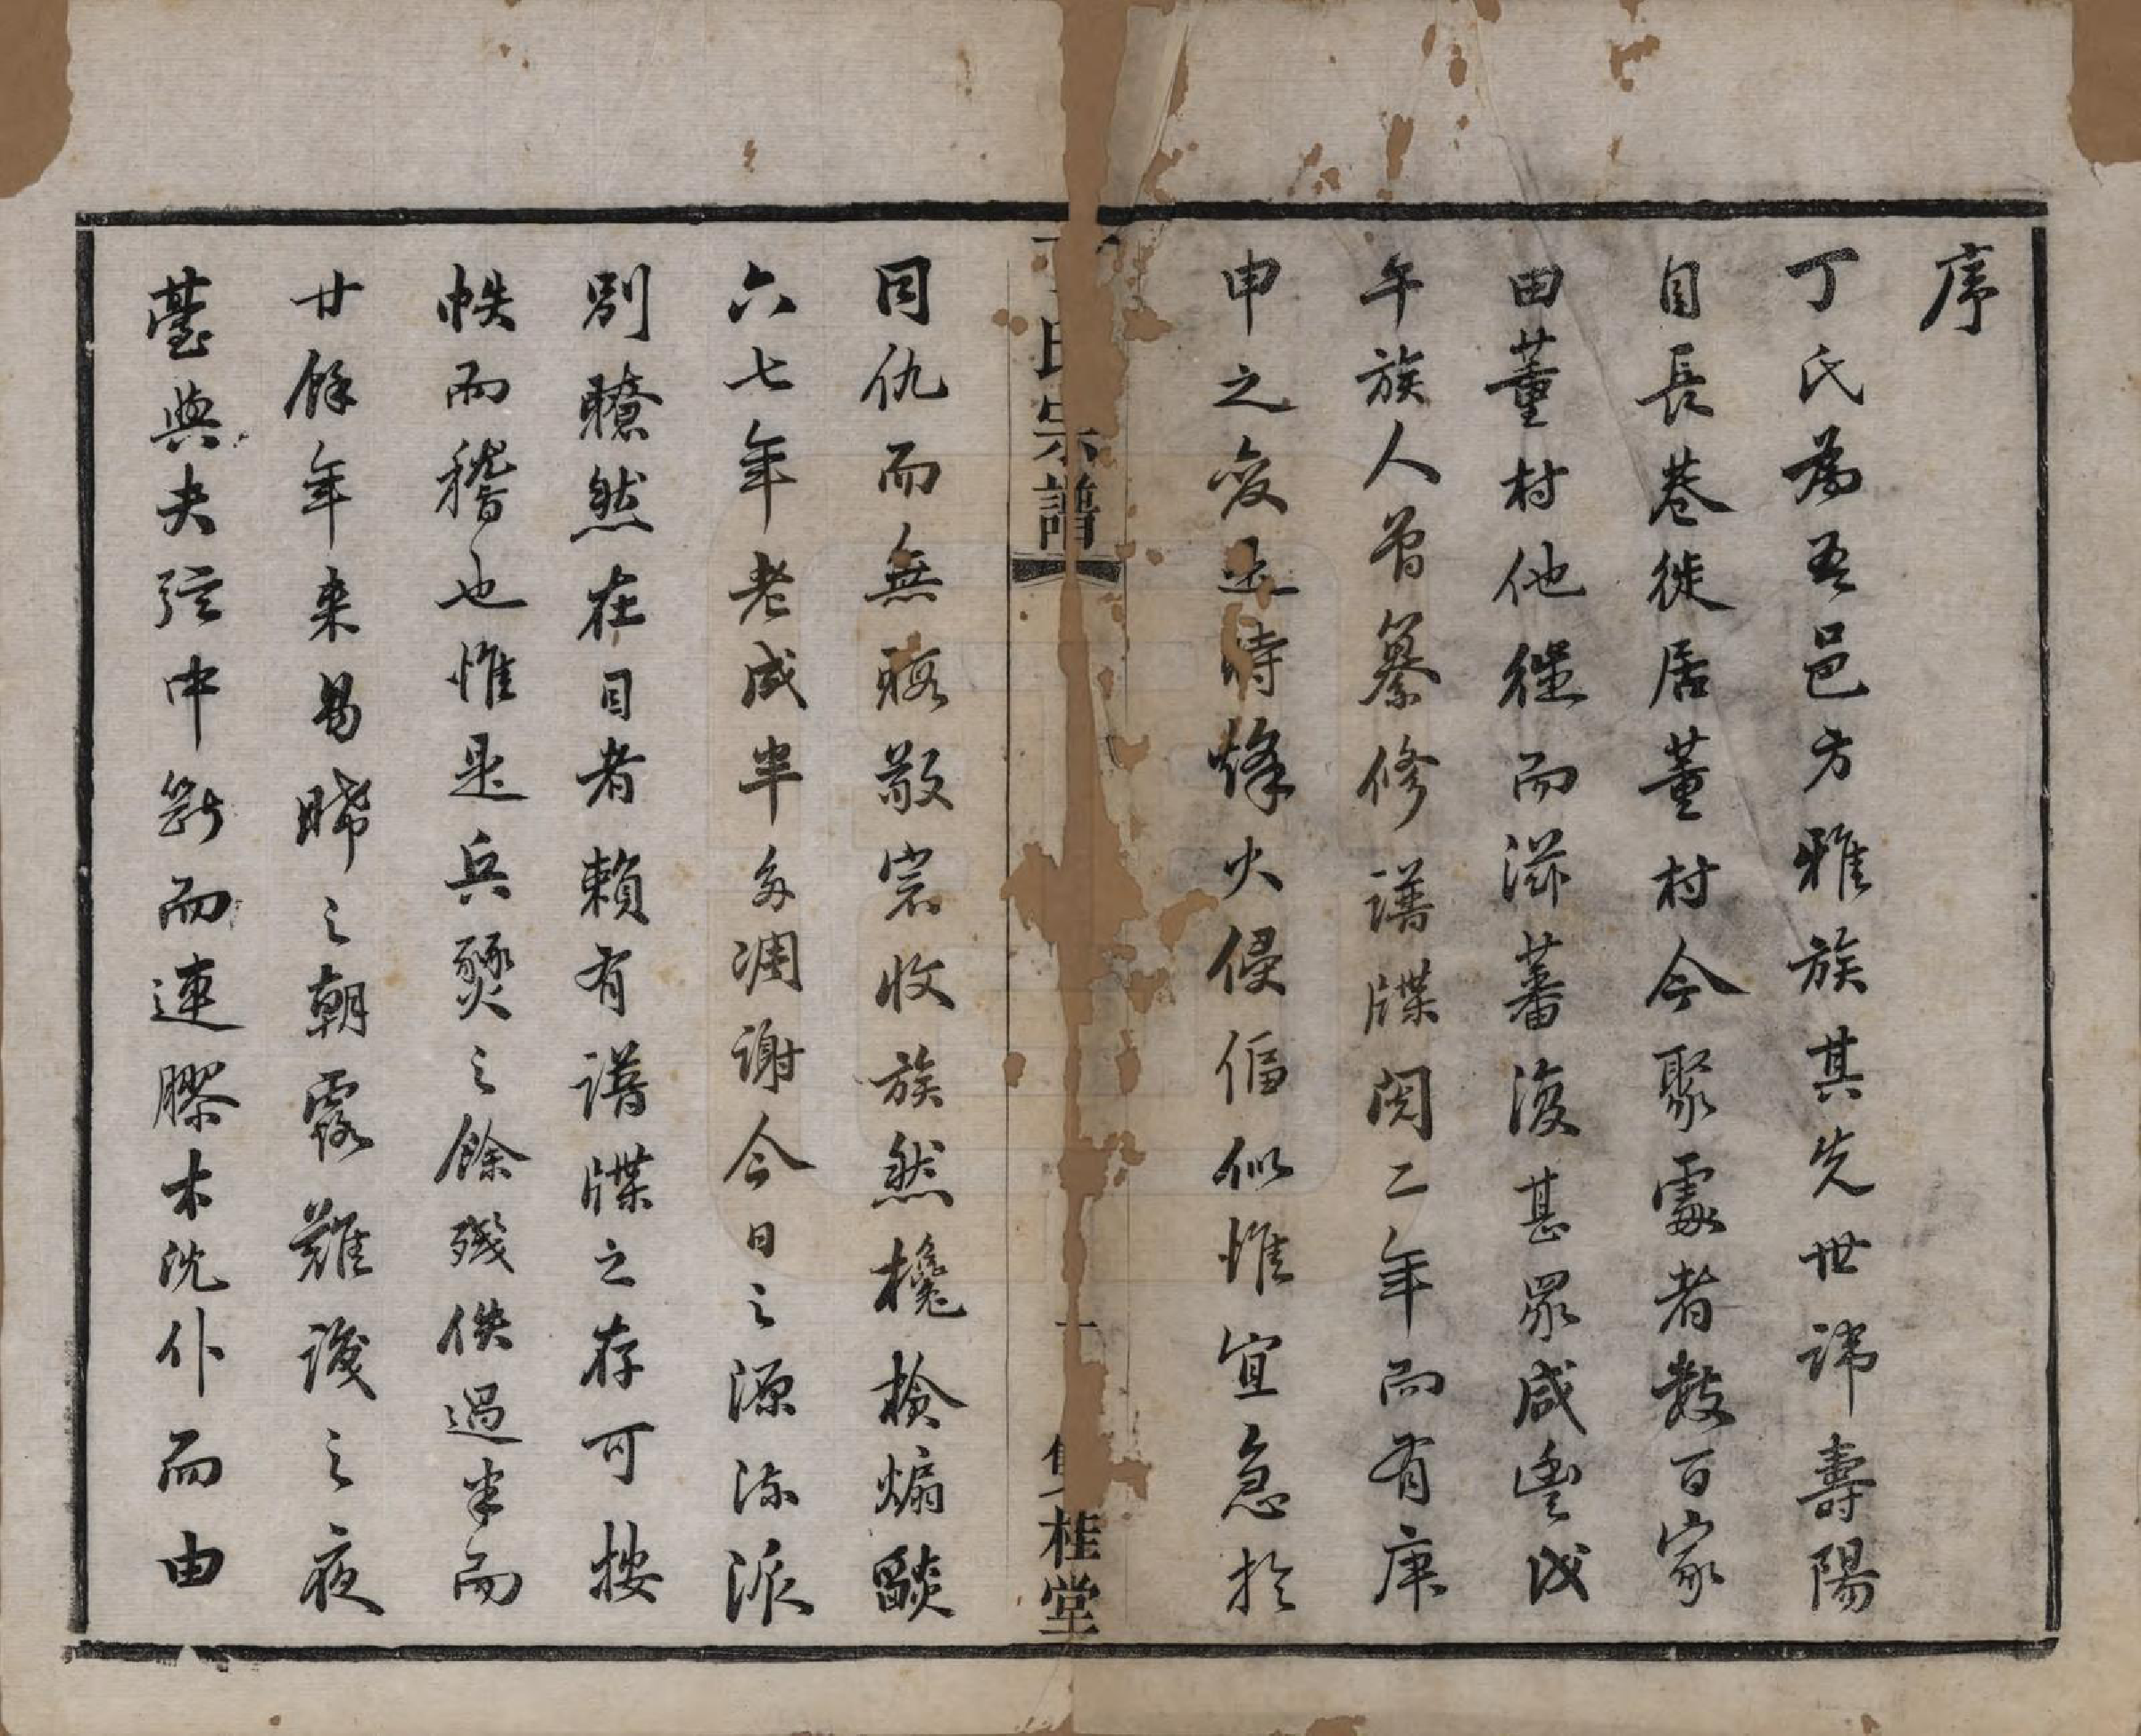 序
丁氏為吾邑方雅族其先世諱壽陽
自長巷徙居董村今聚處者數百家
由董村他徙而滋蕃復甚眾咸豐戊
午族人曾纂修譜牒閱二年而有庚
申之變 時烽火侵偪似惟宜急於
氏宗譜 一 桂堂
同仇而無暇敬宗收族然欃槍煽燄
六七年老成半多凋謝今日之源流派
別瞭然在目者賴有譜牒之存可按
帙而稽也惟是兵燹之餘殘佚過半而
廿餘年來易晞之朝露難護之夜
臺與夫弦中斷而連膠木沈仆而由